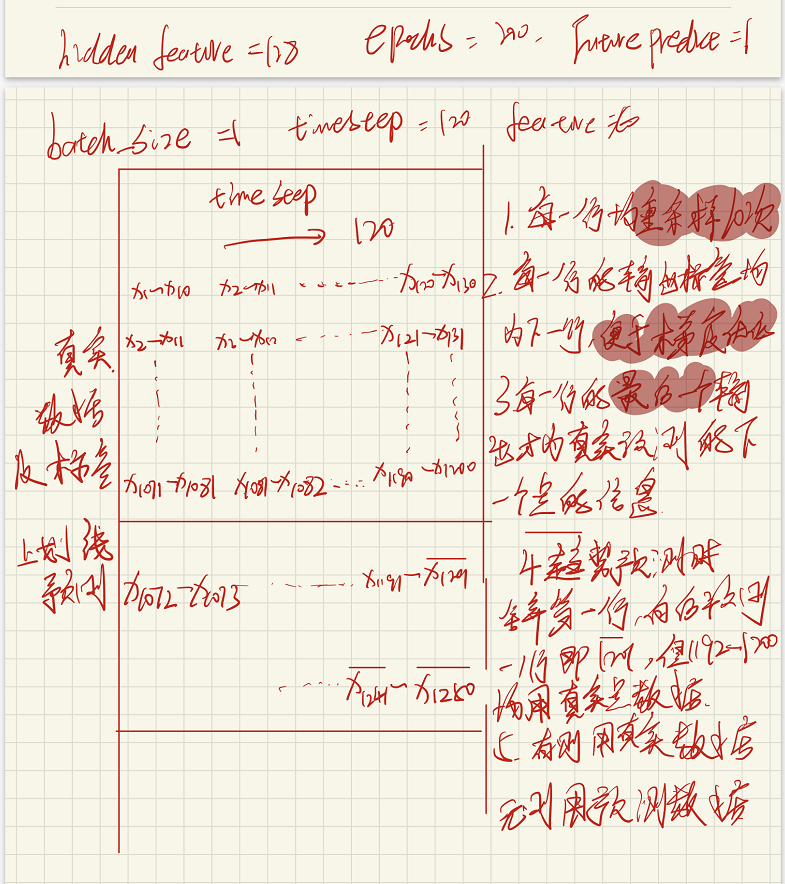 hidden feature = 128 epochs = 200. Future predict = 1
batch_size = 1 timestep = 120 feature =
time step
120
x1→x10 x2→x11 x120→x130
x2→x11 x121→x131
真实
数据
及标签
x1071→x1081 x1081→x1082 x1180→x1200
上划线
预测
x1072→x1073 x1191→x1201
x1241→x1250
1. 每一行均重采样10次
2. 每一行的输出标签均
为下一行,便于梯度
3 每一行的最后一个输
出才为真实预测的下
一个点的信息
4 趋势预测时
舍弃第一行,向后预测
一行即1201,但1192→1200
均用真实点数据.
5. 有则用真实数据
无则用预测数据